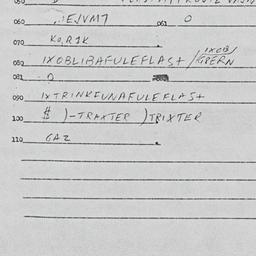 060 ,,:E/VM7 061 0
070 Ko,R1K
080 1XOBLIBAFULEFLAS+ /GPERN
081 - 0
090 1XTRINKFUNAFULEFLAS+
100 $ )-TRAXTER )TRIXTER
110 GAZ